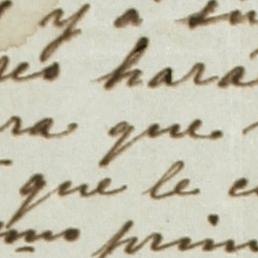 y á su
res hará
ra que
que le
mo prim